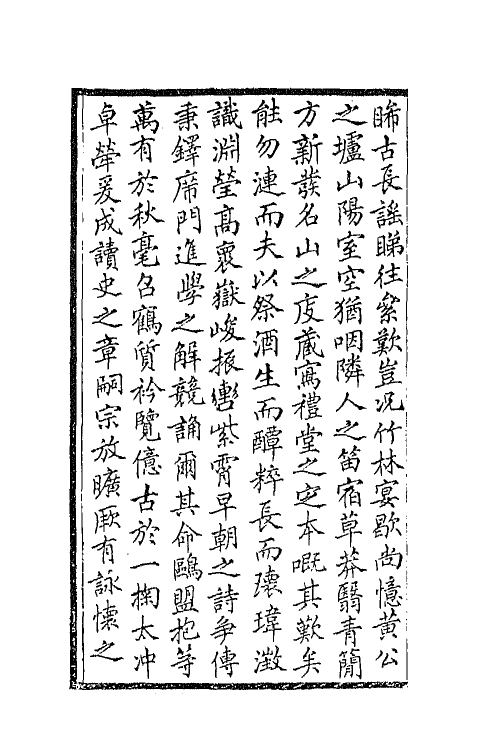 睎古長謠睇往絫歎豈况竹林宴歇尚憶黃公
之壚山陽室空猶咽隣人之笛宿草莽翳青簡
方新發名山之庋藏寫禮堂之定本嘅其歎矣
能勿漣而夫以祭酒生而醰粹長而瓌瑋澂
識淵瑩高褱嶽峻振轡紫霄早朝之詩爭傳
秉鐸席門進學之解競誦爾其命鷗盟抱等
萬有於秋毫名鶴質衿覽億古於一掬太冲
卓犖爰成讀史之章嗣宗放曠厥有詠懷之